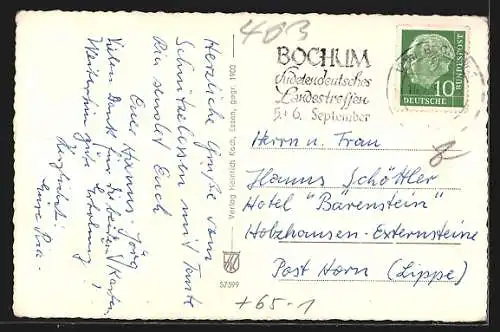 403
BOCHUM
Sudetendeutsches
Landestreffen
5.+6. September
10
BUNDESPOST
DEUTSCHE
Herrn u. Frau
Hanns Schöttler
Hotel "Bärenstein"
Holzhausen-Externsteine
Post Horn (Lippe)
Herzliche Grüße vom
Schnitzelessen mit Tante
Ria sendet Euch
Euer Hanns-Jörg
Vielen Dank für die beiden Karten,
Weiterhin gute Erholung!
Herzlichst
Eure
Verlag Heinrich Koch, Essen, gegr. 1903
57599
+65-1